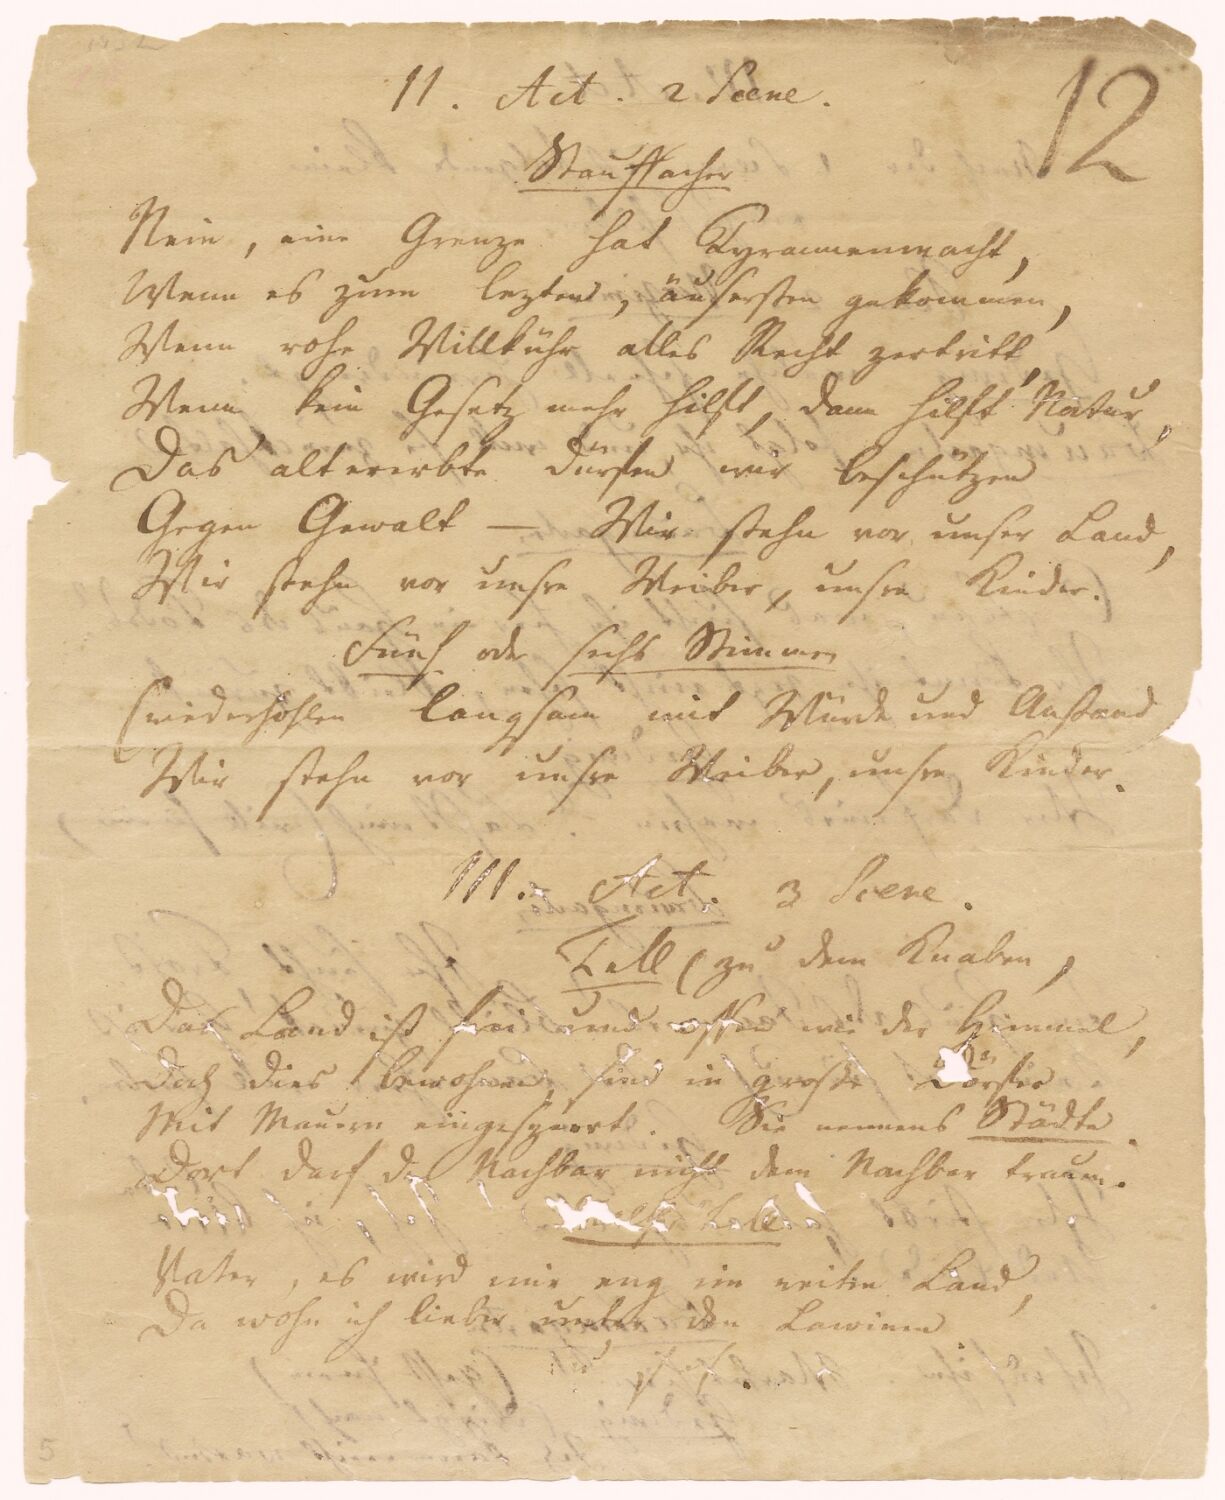 12
II. Act. 2 Scene.
Stauffacher
Nein, eine Grenze hat Tyrannenmacht,
Wenn es zum lezten, äusersten gekommen,
Wenn rohe Willkühr alles Recht zertritt,
Wenn kein Gesetz mehr hilft, dann hilft Natur.
Das altererbte dürfen wir beschützen
Gegen Gewalt — Wir stehn vor unser Land,
Wir stehn vor unsre Weiber, unsre Kinder.
Fünf oder sechs Stimmen
(wiederhohlen langsam mit Würde und Anstand
Wir stehn vor unsre Weiber, unsre Kinder.
III. Act. 3 Scene.
Tell (zu dem Knaben,
Das Land ist frei und offen wie der Himmel,
Doch dies bewohnen, sind in große Dörfer
Mit Mauern eingesperrt. Sie nennens Städte.
Dort darf der Nachbar nicht dem Nachbar traun.
Tell
Vater, es wird mir eng im weiten Land,
Da wohn ich lieber unter den Lawinen
5